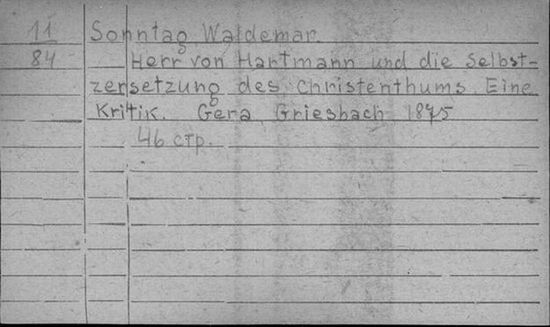 11 Sonntag Waldemar.
84 Herr von Hartmann und die Selbst-
zersetzung des Christenthums. Eine
Kritik. Gera, Griesbach 1875
46 стр.